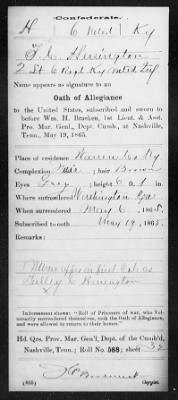 Confederate.
H 6 Mtd Ky
T. L. Herrington
2 Lt. 6 Regt Ky Mtd Inf.
Name appears as signature to an
Oath of Allegiance
to the United States, subscribed and sworn to
before Wm. H. Bracken, 1st Lieut. & Asst.
Pro. Mar. Genl., Dept. Cumb., at Nashville,
Tenn., May 19, 1865.
Place of residence Warren Co Ky
Complexion Fair; hair Brown
Eyes Gray; height 6 ft. in.
Where surrendered Washington Ga
When surrendered May 6, 1865.
Subscribed to oath May 19, 1865.
Remarks:
Name appears in
as
Herrington
Indorsement shows: "Roll of Prisoners of war, who Vol-
untarily surrendered themselves, took the Oath of Allegiance,
and were allowed to return to their homes."
Hd. Qrs. Provo. Mar. Gen'l, Dept. of the Cumb'd,
Nashville, Tenn.; Roll No. 588; sheet 32
(865) Copyist.